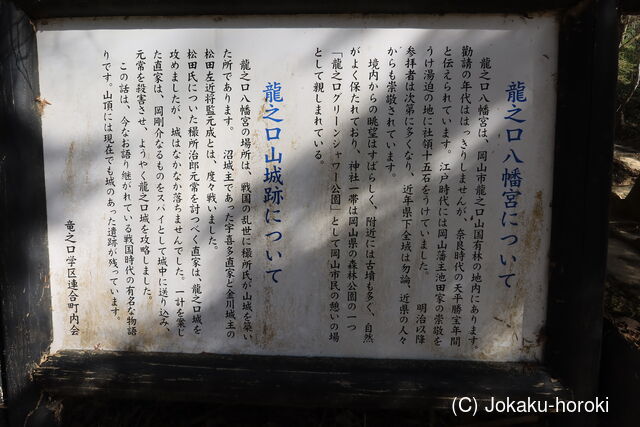 龍之口八幡宮について
龍之口八幡宮は、岡山市龍之口山国有林の地内にあります。
勧請の年代ははっきりしませんが、奈良時代の天平勝宝年間
と伝えられています。江戸時代には岡山藩主池田家の崇敬を
うけ湯迫の地に社領十五石をうけていました。　明治以降
参拝者は次第に多くなり、近年県下全域は勿論、近県の人々
からも崇敬されています。
境内からの眺望はすばらしく、附近には古墳も多く、自然
がよく保たれており、神社一帯は岡山県の森林公園の一つ
「龍之口グリーンシャワー公園」として岡山市民の憩いの場
として親しまれている。
龍之口山城跡について
龍之口八幡宮の場所は、戦国の乱世に穝所氏が山城を築い
た所であります。　沼城主であった宇喜多直家と金川城主の
松田左近将監元成とは、度々戦いました。
松田氏についた穝所治郎元常を討つべく直家は、龍之口城を
攻めましたが、城はなかなか落ちませんでした。一計を案じ
た直家は、岡剛介なるものをスパイとして城中に送り込み、
元常を殺害させ、ようやく龍之口城を攻略しました。
この話は、今なお語り継がれている戦国時代の有名な物語
りです。山頂には現在でも城のあった遺跡が残っています。
竜之口学区連合町内会
(C) Jokaku-horoki